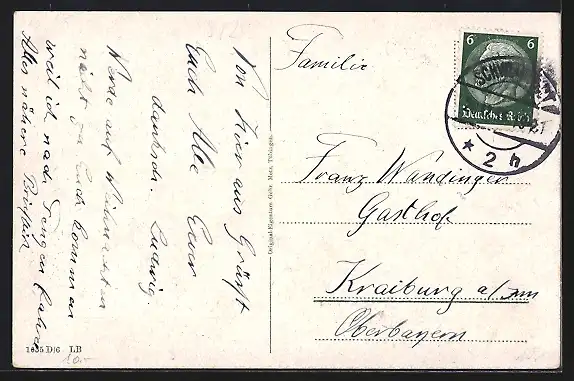 Von hier aus Grüßt
Euch Alle Euer
dankb. Ludwig
Werde auf Weihnachten
nicht zu Euch kommen
weil ich nach
Alles nähere Brieflich
Familie
Franz Wandinger
Gasthof
Kraiburg a/Inn
Oberbayern
6 6
Deutsches Reich
* 2 h
Original-Eigentum Gebr. Metz, Tübingen.
1635 D/6 LB
10.-